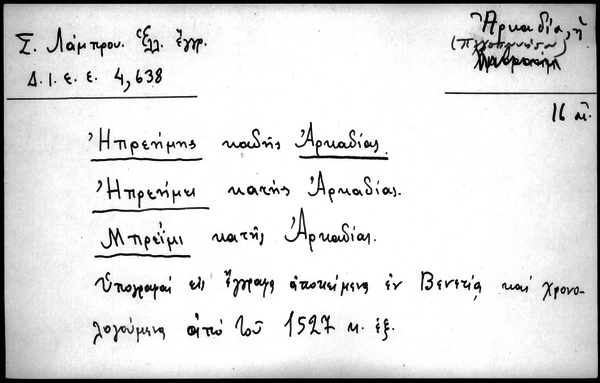 Σ. Λάμπρου. Ἑλλ. ἔγγρ.
Δ. Ι. Ε. Ε. 4,638
Ἀρκαδία, ἡ
(Πελοπόννησος)
16 αἰ.
Ἠπρεήμης καδῆς Ἀρκαδίας.
Ἠπρεήμει κατῆς Ἀρκαδίας.
Μπρεΐμι κατῆς Ἀρκαδίας.
Ὑπογραφαὶ εἰς ἔγγραφα ἀποκείμενα ἐν Βενετίᾳ καὶ χρονο-
λογούμενα ἀπὸ τοῦ 1527 κ. ἑξ.